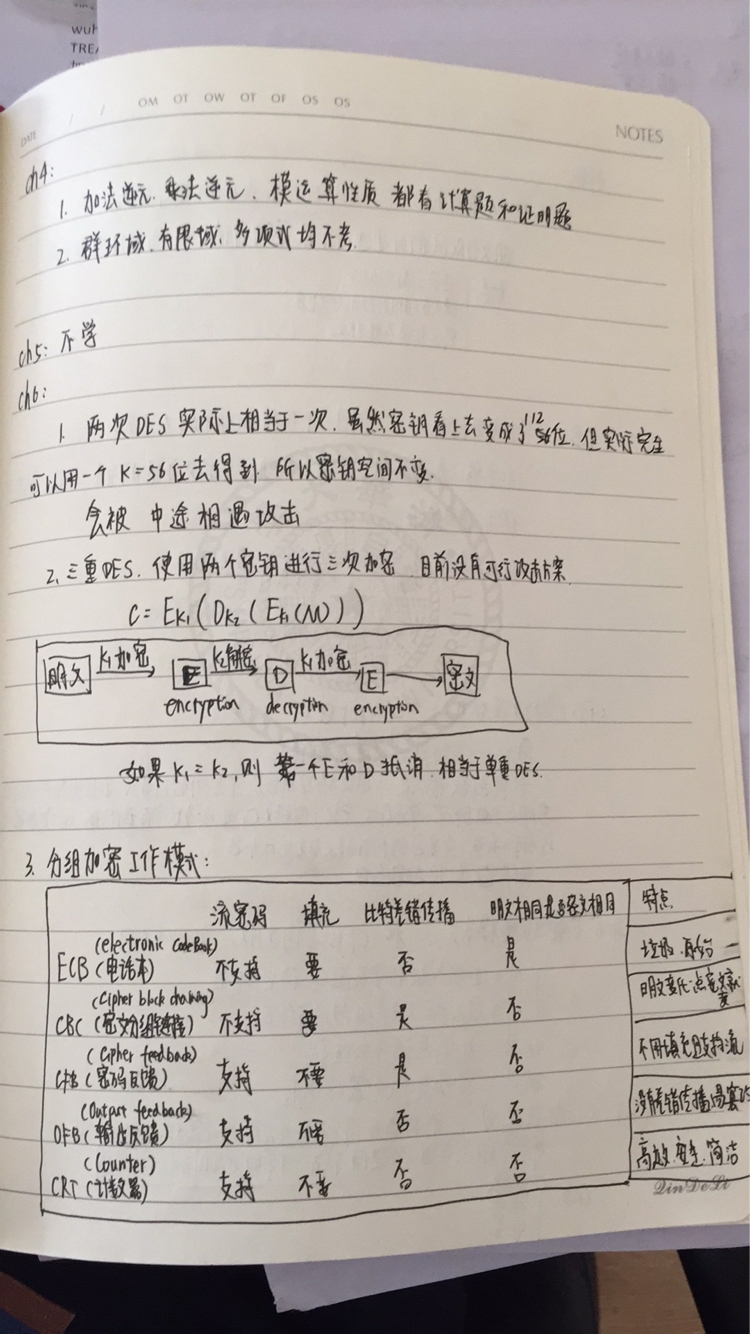 wuh
TREA
DATE / / OM OT OW OT OF OS OS
NOTES
ch4:
1. 加法逆元、乘法逆元、模运算性质 都有计算题和证明题
2. 群环域、有限域、多项式均不考
ch5: 不学
ch6:
1. 两次DES 实际上相当于一次. 虽然密钥看上去变成了112位, 但实际完全
可以用一个 K=56位去得到 所以密钥空间不变.
会被 中途相遇攻击
2. 三重DES. 使用两个密钥进行三次加密 目前没有可行攻击方案
C = EK1(DK2(EK1(M)))
明文 K1加密 E K2解密 D K1加密 E 密文
encryption decryption encryption
如果K1=K2, 则 第一个E和D抵消. 相当于单重DES.
3. 分组加密工作模式:
流密码 填充 比特差错传播 明文相同是否密文相同 特点
(electronic CodeBook)
ECB (电话本) 不支持 要 否 是
(Cipher block chaining)
CBC (密文分组链接) 不支持 要 是 否 明文变化一点密文就变
(Cipher feedback)
CFB (密码反馈) 支持 不要 是 否 不用填充且支持流
(Output feedback)
OFB (输出反馈) 支持 不要 否 否 没有差错传播
(Counter)
CRT (计数器) 支持 不要 否 否 高效.安全.简洁
QinDeLi